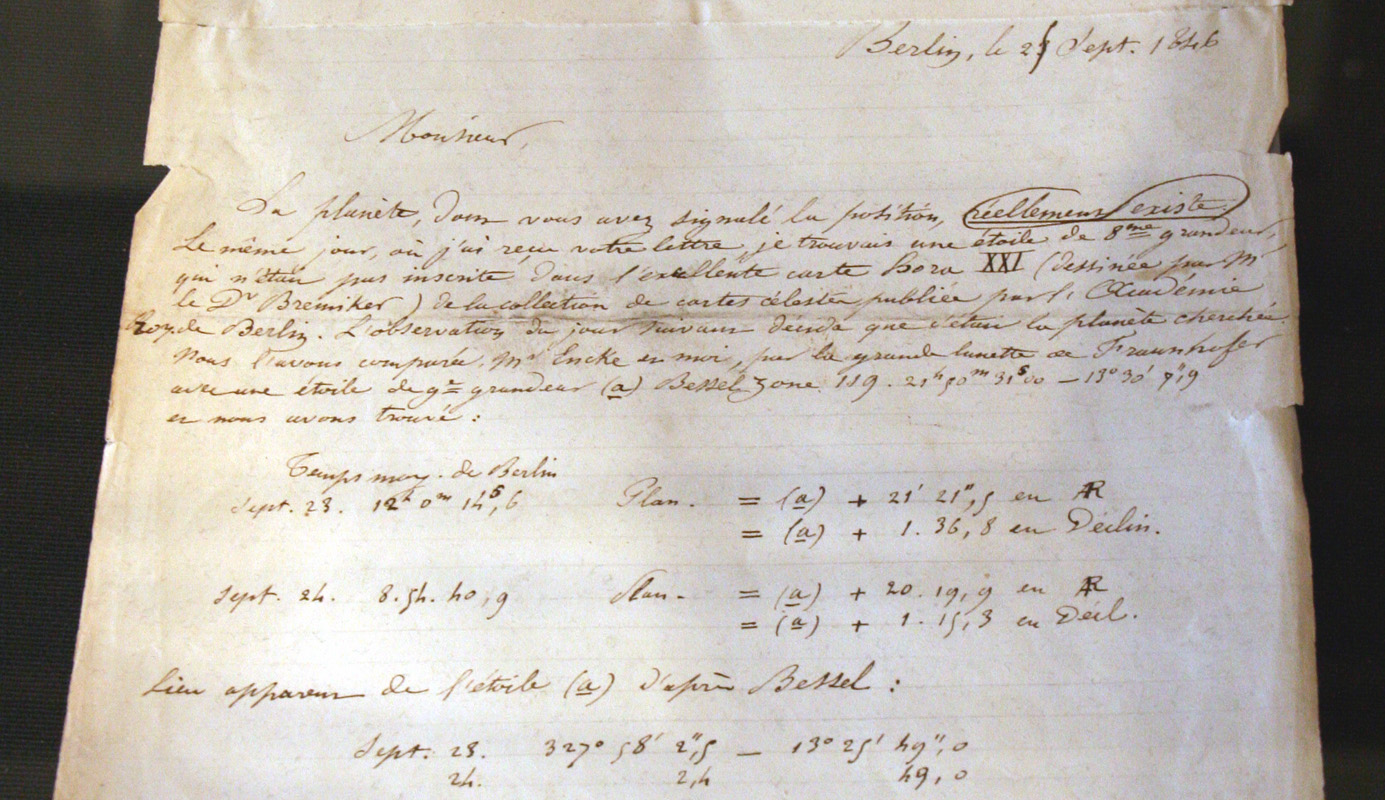 Berlin, le 25 Sept. 1846
Monsieur,
La planète, dont vous avez signalé la position, réellement existe.
Le même jour, où j'ai reçu votre lettre, je trouvais une étoile de 8me grandeur,
qui n'était pas inscrite dans l'excellente carte Hora XXI (dessinée par Mr
le Dr Bremiker) de la collection de cartes célestes publiée par l'Académie
Roy. de Berlin. L'observation du jour suivant décida que c'était la planète cherchée.
Nous l'avons comparée, Mr Encke et moi, par la grande lunette de Fraunhofer
avec une étoile de 9e grandeur (a) Bessel Zone 119. 21h 50m 31s 00 — 13° 30' 7",9
et nous avons trouvé :
Temps moy. de Berlin
Sept. 23. 12h 0m 14s,6 Plan. = (a) + 21' 21",5 en AR
= (a) + 1. 36, 8 en Déclin.
Sept. 24. 8. 54. 40, 9 Plan. = (a) + 20. 19, 9 en AR
= (a) + 1. 15, 3 en Décl.
Lieu apparent de l'étoile (a) d'après Bessel :
Sept. 23. 327° 58' 2",5 — 13° 25' 49",0
24. 2,4 49,0